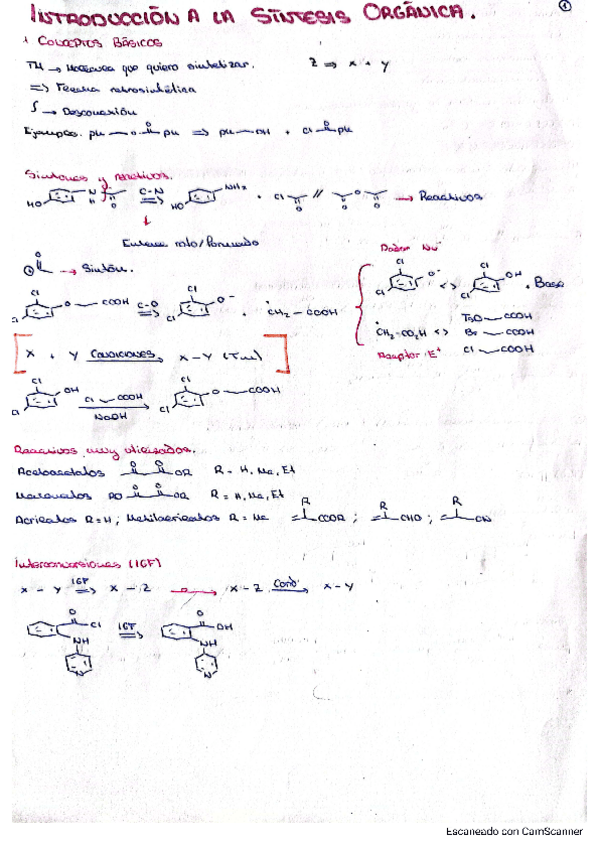 INTRODUCCIÓN A LA SÍNTESIS ORGÁNICA. 1
CONCEPTOS BÁSICOS
TM → Molécula que quiero sintetizar. Z ⇒ X + Y
⇒ Flecha retrosintética
∫ → Desconexión
Ejemplos. Ph O O Ph ⇒ Ph OH + Cl O Ph
Sintones y reactivos.
HO N H O C-N ⇒ HO NH2 + Cl O // O O O → Reactivos
Enlace roto/formado
O → Sintón.
Dador Nu-
Cl Cl O COOH C-O ⇒ Cl Cl O- + CH2 - COOH
Cl Cl O- <> Cl Cl OH + Base
CH2-CO2H <> TsO COOH
Br COOH
Cl COOH
Aceptor E+
X + Y Condiciones → X-Y (TM)
Cl Cl OH Cl COOH NaOH → Cl Cl O COOH
Reactivos muy utilizados.
Acetoacetatos O O OR R = H, Me, Et
Malonatos RO O O OR R = H, Me, Et
Acrilatos R=H; Metilacrilatos R = Me R COOR ; R CHO ; R CN
Interconversiones (IGF)
X - Y IGF ⇒ X - Z → X - Z Cond → X - Y
O Cl NH N IGF ⇒ O OH NH N
Escaneado con CamScanner